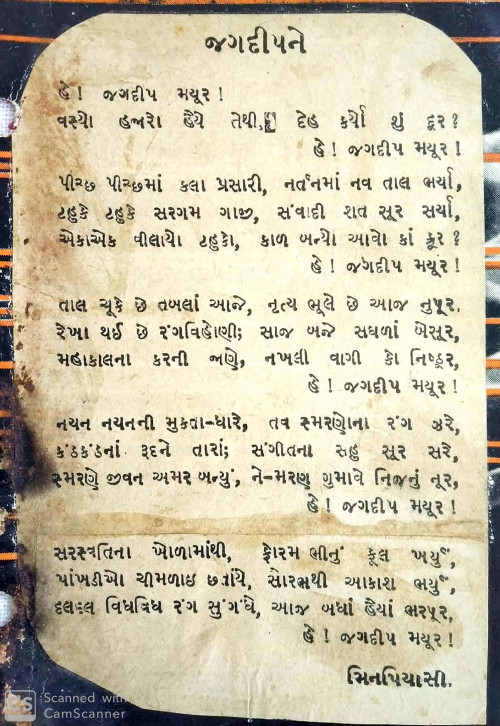 જગદીપને
હે! જગદીપ મયૂર!
વસ્યો હજારો હૈયે તેથી, દેહ કર્યો શું દૂર?
હે! જગદીપ મયૂર!
પીચ્છ પીચ્છમાં કલા પ્રસારી, નર્તનમાં નવ તાલ ભર્યા,
ટહુકે ટહુકે સરગમ ગાજી, સંવાદી શત સૂર સર્યા,
એકાએક વીલાયો ટહુકો, કાળ બન્યો આવો કાં ક્રૂર?
હે! જગદીપ મયૂર!
તાલ ચૂકે છે તબલાં આજે, નૃત્ય ભૂલે છે આજ નુપૂર,
રેખા થઈ છે રંગવિહોણી; સાજ બજે સઘળાં બેસૂર,
મહાકાલના કરની જાણે, નખલી વાગી કો નિષ્ઠૂર,
હે! જગદીપ મયૂર!
નયન નયનની મુકતા-ધારે, તવ સ્મરણોના રંગ ઝરે,
કંઠકંઠનાં રૂદને તારાં; સંગીતના સહુ સૂર સરે,
સ્મરણે જીવન અમર બન્યું, ને-મરણ ગુમાવે નિજનું નૂર,
હે! જગદીપ મયૂર!
સરસ્વતિના ખોળામાંથી, ફોરમ ભીનું ફૂલ ખર્યું,
પાંખડીઓ ચીમળાઇ છતાંયે, સોરભથી આકાશ ભર્યું,
દલદલ વિધવિધ રંગ સુગંધે, આજ બધાં હૈયાં ભરપૂર,
હે! જગદીપ મયૂર!
મિનપિયાસી.
CS Scanned with
CamScanner